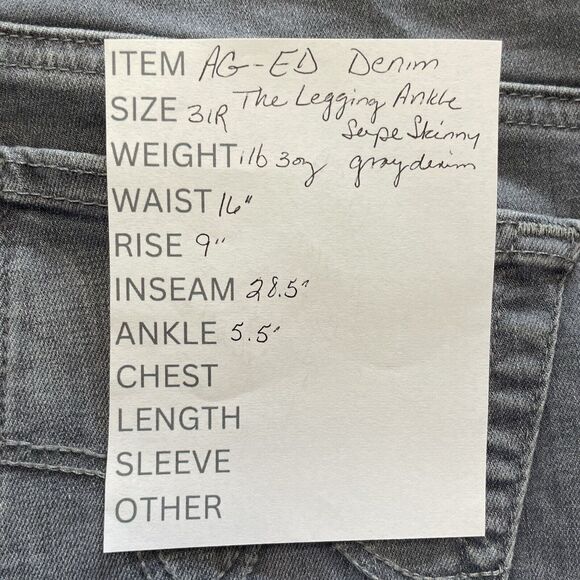 ITEM AG-ED Denim
SIZE 31R The Legging Ankle
Supe Skinny
WEIGHT 1lb 3oz gray denim
WAIST 16"
RISE 9"
INSEAM 28.5"
ANKLE 5.5"
CHEST
LENGTH
SLEEVE
OTHER